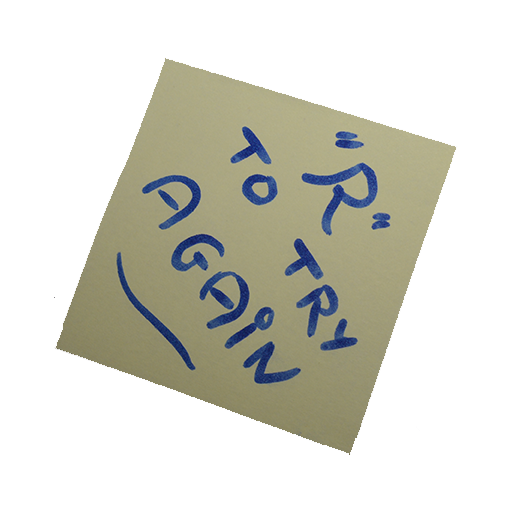 "R"
TO TRY
AGAIN